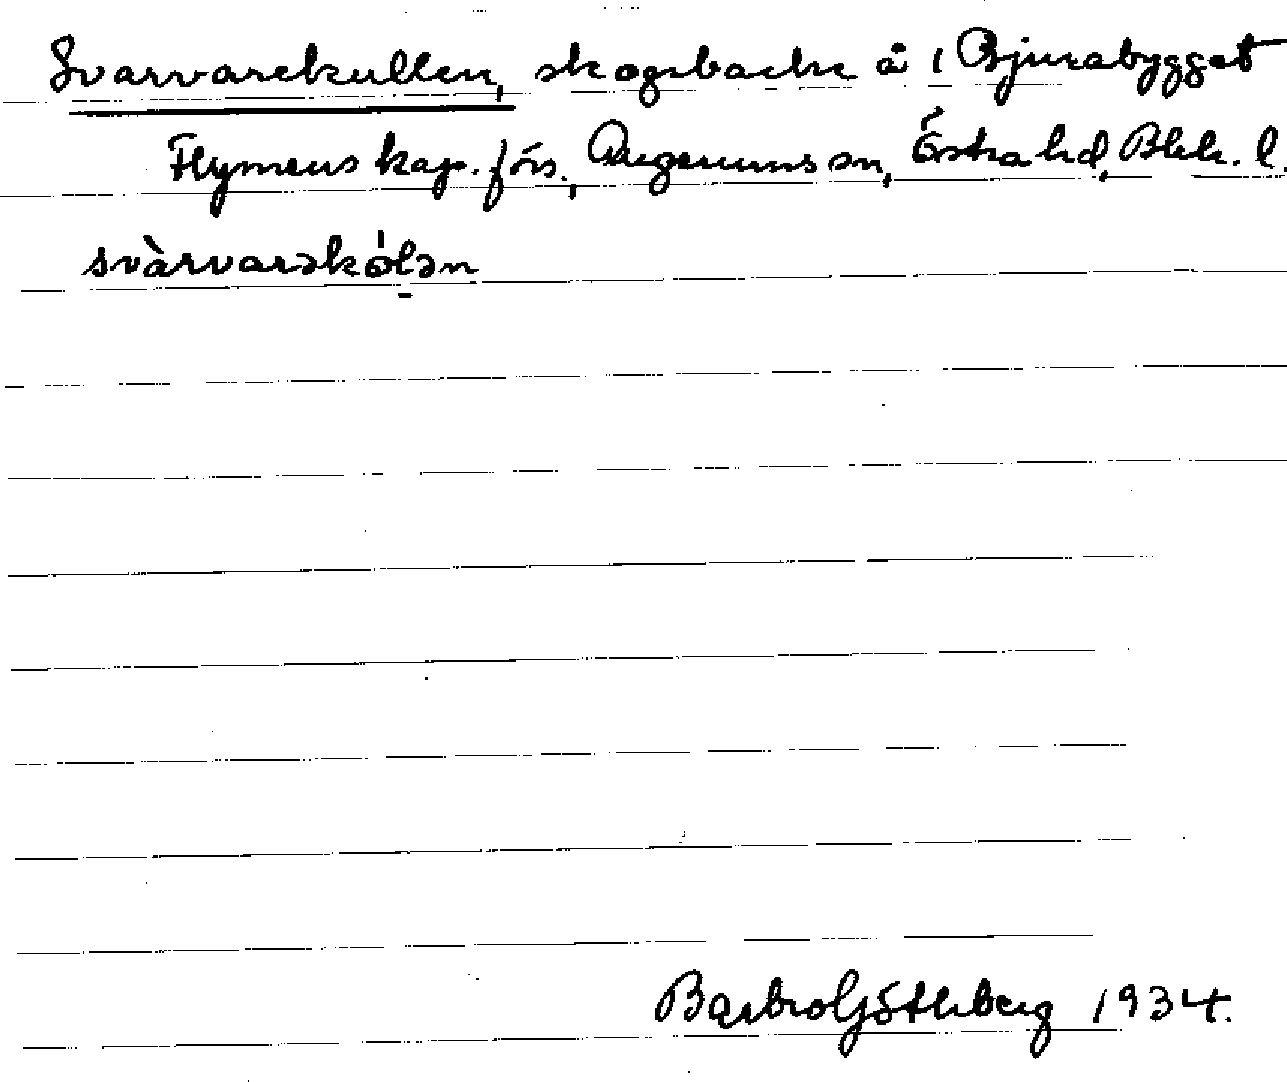 Svarvarekullen, skogsbacke å 1 Bjurabygget
Flymens kap. förs., Augerums sn, Östra hd, Blek. l.
svàrvarəkólən
Barbro Götheberg 1934.